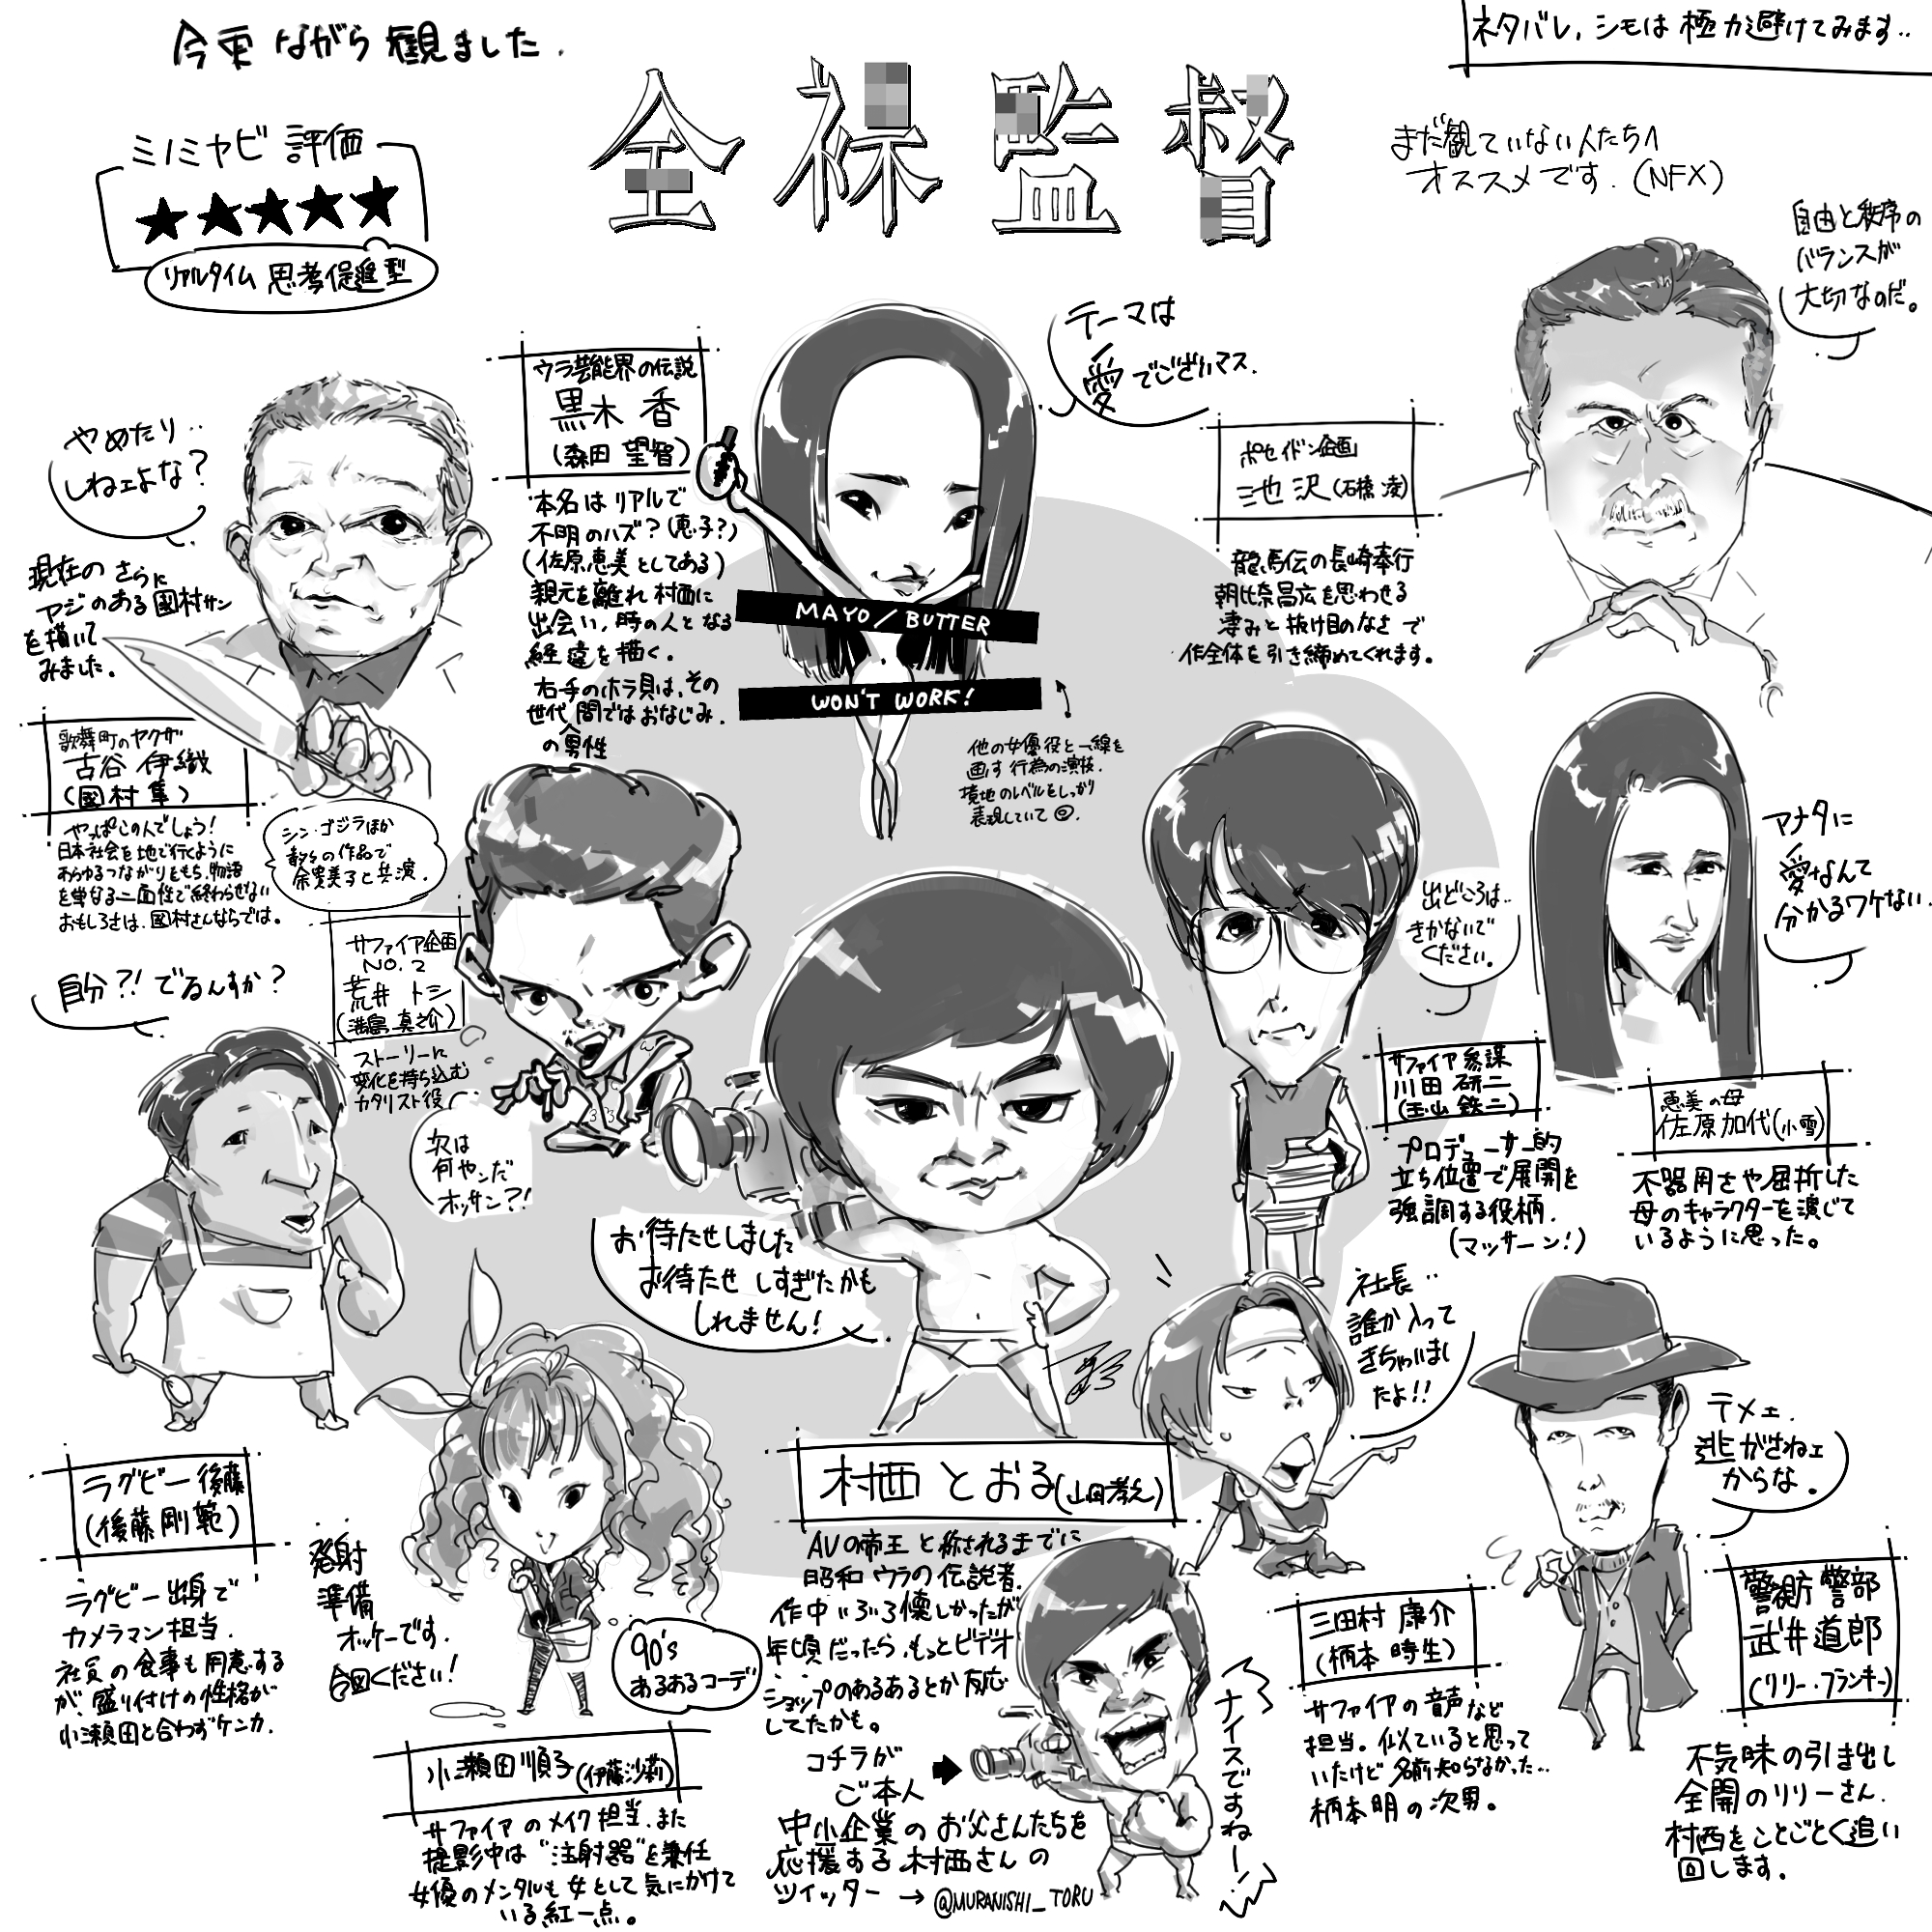 今更ながら観ました.
ネタバレ,シモは極力避けてみます..
全裸監督
ミノミヤビ評価
★★★★★
リアルタイム思考促進型
まだ観ていない人たちへ
オススメです.(NFX)
自由と秩序の
バランスが
大切なのだ。
テーマは
愛でございマス.
ウラ芸能界の伝説
黒木 香
(森田 望智)
本名はリアルで
不明のハズ?(恵子?)
(佐原恵美としてある)
親元を離れ村西に
出会い,時の人となる
経違を描く.
右手のホラ貝は,その
世代間ではおなじみ.
の男性
MAYO/BUTTER
WON'T WORK!
他の女優役と一線を
画す行為の演技.
境地のレベルをしっかり
表現していて◎.
やめたり..
しねェよな?
現在のさらに
アジのある國村サン
を描いて
みました.
歌舞町のヤクザ
古谷 伊織
(國村 隼)
やっぱこの人でしょう!
日本社会を地で行くように
あらゆるつながりをもち,物語
を単なる二面性で終わらせない
おもしろさは,國村さんならでは.
シン・ゴジラほか
数々の作品で
余貴美子と共演.
ポセイドン企画
池沢(石橋 凌)
龍馬伝の長崎奉行
朝比奈昌広を思わせる
凄みと抜け目のなさで
作全体を引き締めてくれます.
サファイア企画
NO.2
荒井 トシ
(満島 真之介)
ストーリーに
変化を持ち込む
カタリスト役
次は
何やンだ
オッサン?!
自分?!でるんすか?
出どころは..
きかないで
ください.
アナタに
愛なんて
分かるワケない.
サファイア参謀
川田 研二
(玉山 鉄二)
プロデューサー的
立ち位置で展開を
強調する役柄.
(マッサーン!)
恵美の母
佐原加代(小雪)
不器用さや屈折した
母のキャラクターを演じて
いるように思った。
お待たせしました
お待たせしすぎたかも
しれません!
社長..
誰か入って
きちゃいまし
たよ!!
テメェ.
逃がさねェ
からな.
ラグビー後藤
(後藤剛範)
ラグビー出身で
カメラマン担当.
社員の食事も用意する
が,盛り付けの性格が
小瀬田と合わずケンカ.
発射
準備
オッケーです.
合図ください!
90's
あるあるコーデ
小瀬田順子(伊藤沙莉)
サファイアのメイク担当.また
撮影中は"注射器"を兼任
女優のメンタルも女として気にかけて
いる紅一点。
村西とおる(山田孝之)
AVの帝王と称されるまでに
昭和ウラの伝説者.
作中いろいろ懐しかったが
年頃だったら,もっとビデオ
ショップのあるあるとか反応
してたかも。
コチラが
ご本人
ナイスですねー!
中小企業のお父さんたちを
応援する村西さんの
ツイッター→@MURANISHI_TORU
三田村 康介
(柄本 時生)
サファイアの音声など
担当。似ていると思って
いたけど名前知らなかった..
柄本明の次男。
警視庁警部
武井道郎
(リリー・フランキー)
不気味の引き出し
全開のリリーさん.
村西をことごとく追い
回します.